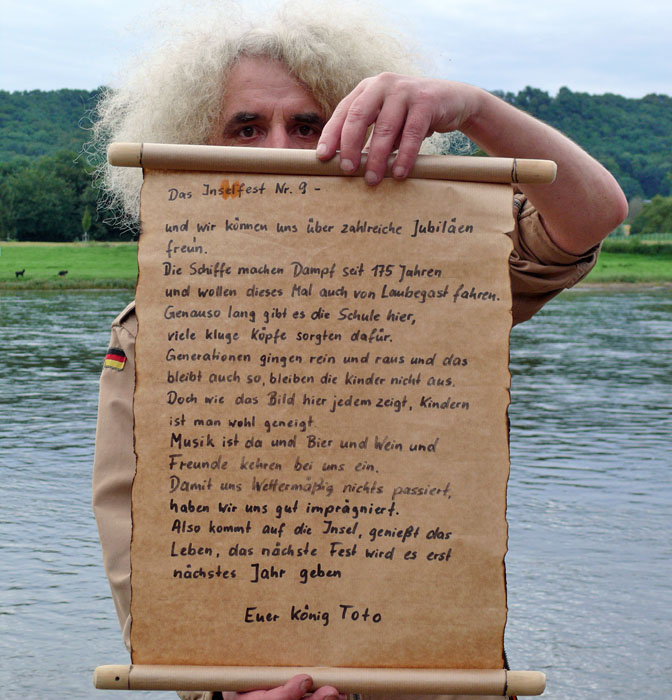 Das Inselfest Nr. 9 -
und wir können uns über zahlreiche Jubiläen
freu'n.
Die Schiffe machen Dampf seit 175 Jahren
und wollen dieses Mal auch von Laubegast fahren.
Genauso lang gibt es die Schule hier,
viele kluge Köpfe sorgten dafür.
Generationen gingen rein und raus und das
bleibt auch so, bleiben die Kinder nicht aus.
Doch wie das Bild hier jedem zeigt, Kindern
ist man wohl geneigt.
Musik ist da und Bier und Wein und
Freunde kehren bei uns ein.
Damit uns Wettermäßig nichts passiert,
haben wir uns gut imprägniert.
Also kommt auf die Insel, genießt das
Leben, das nächste Fest wird es erst
nächstes Jahr geben
Euer König Toto